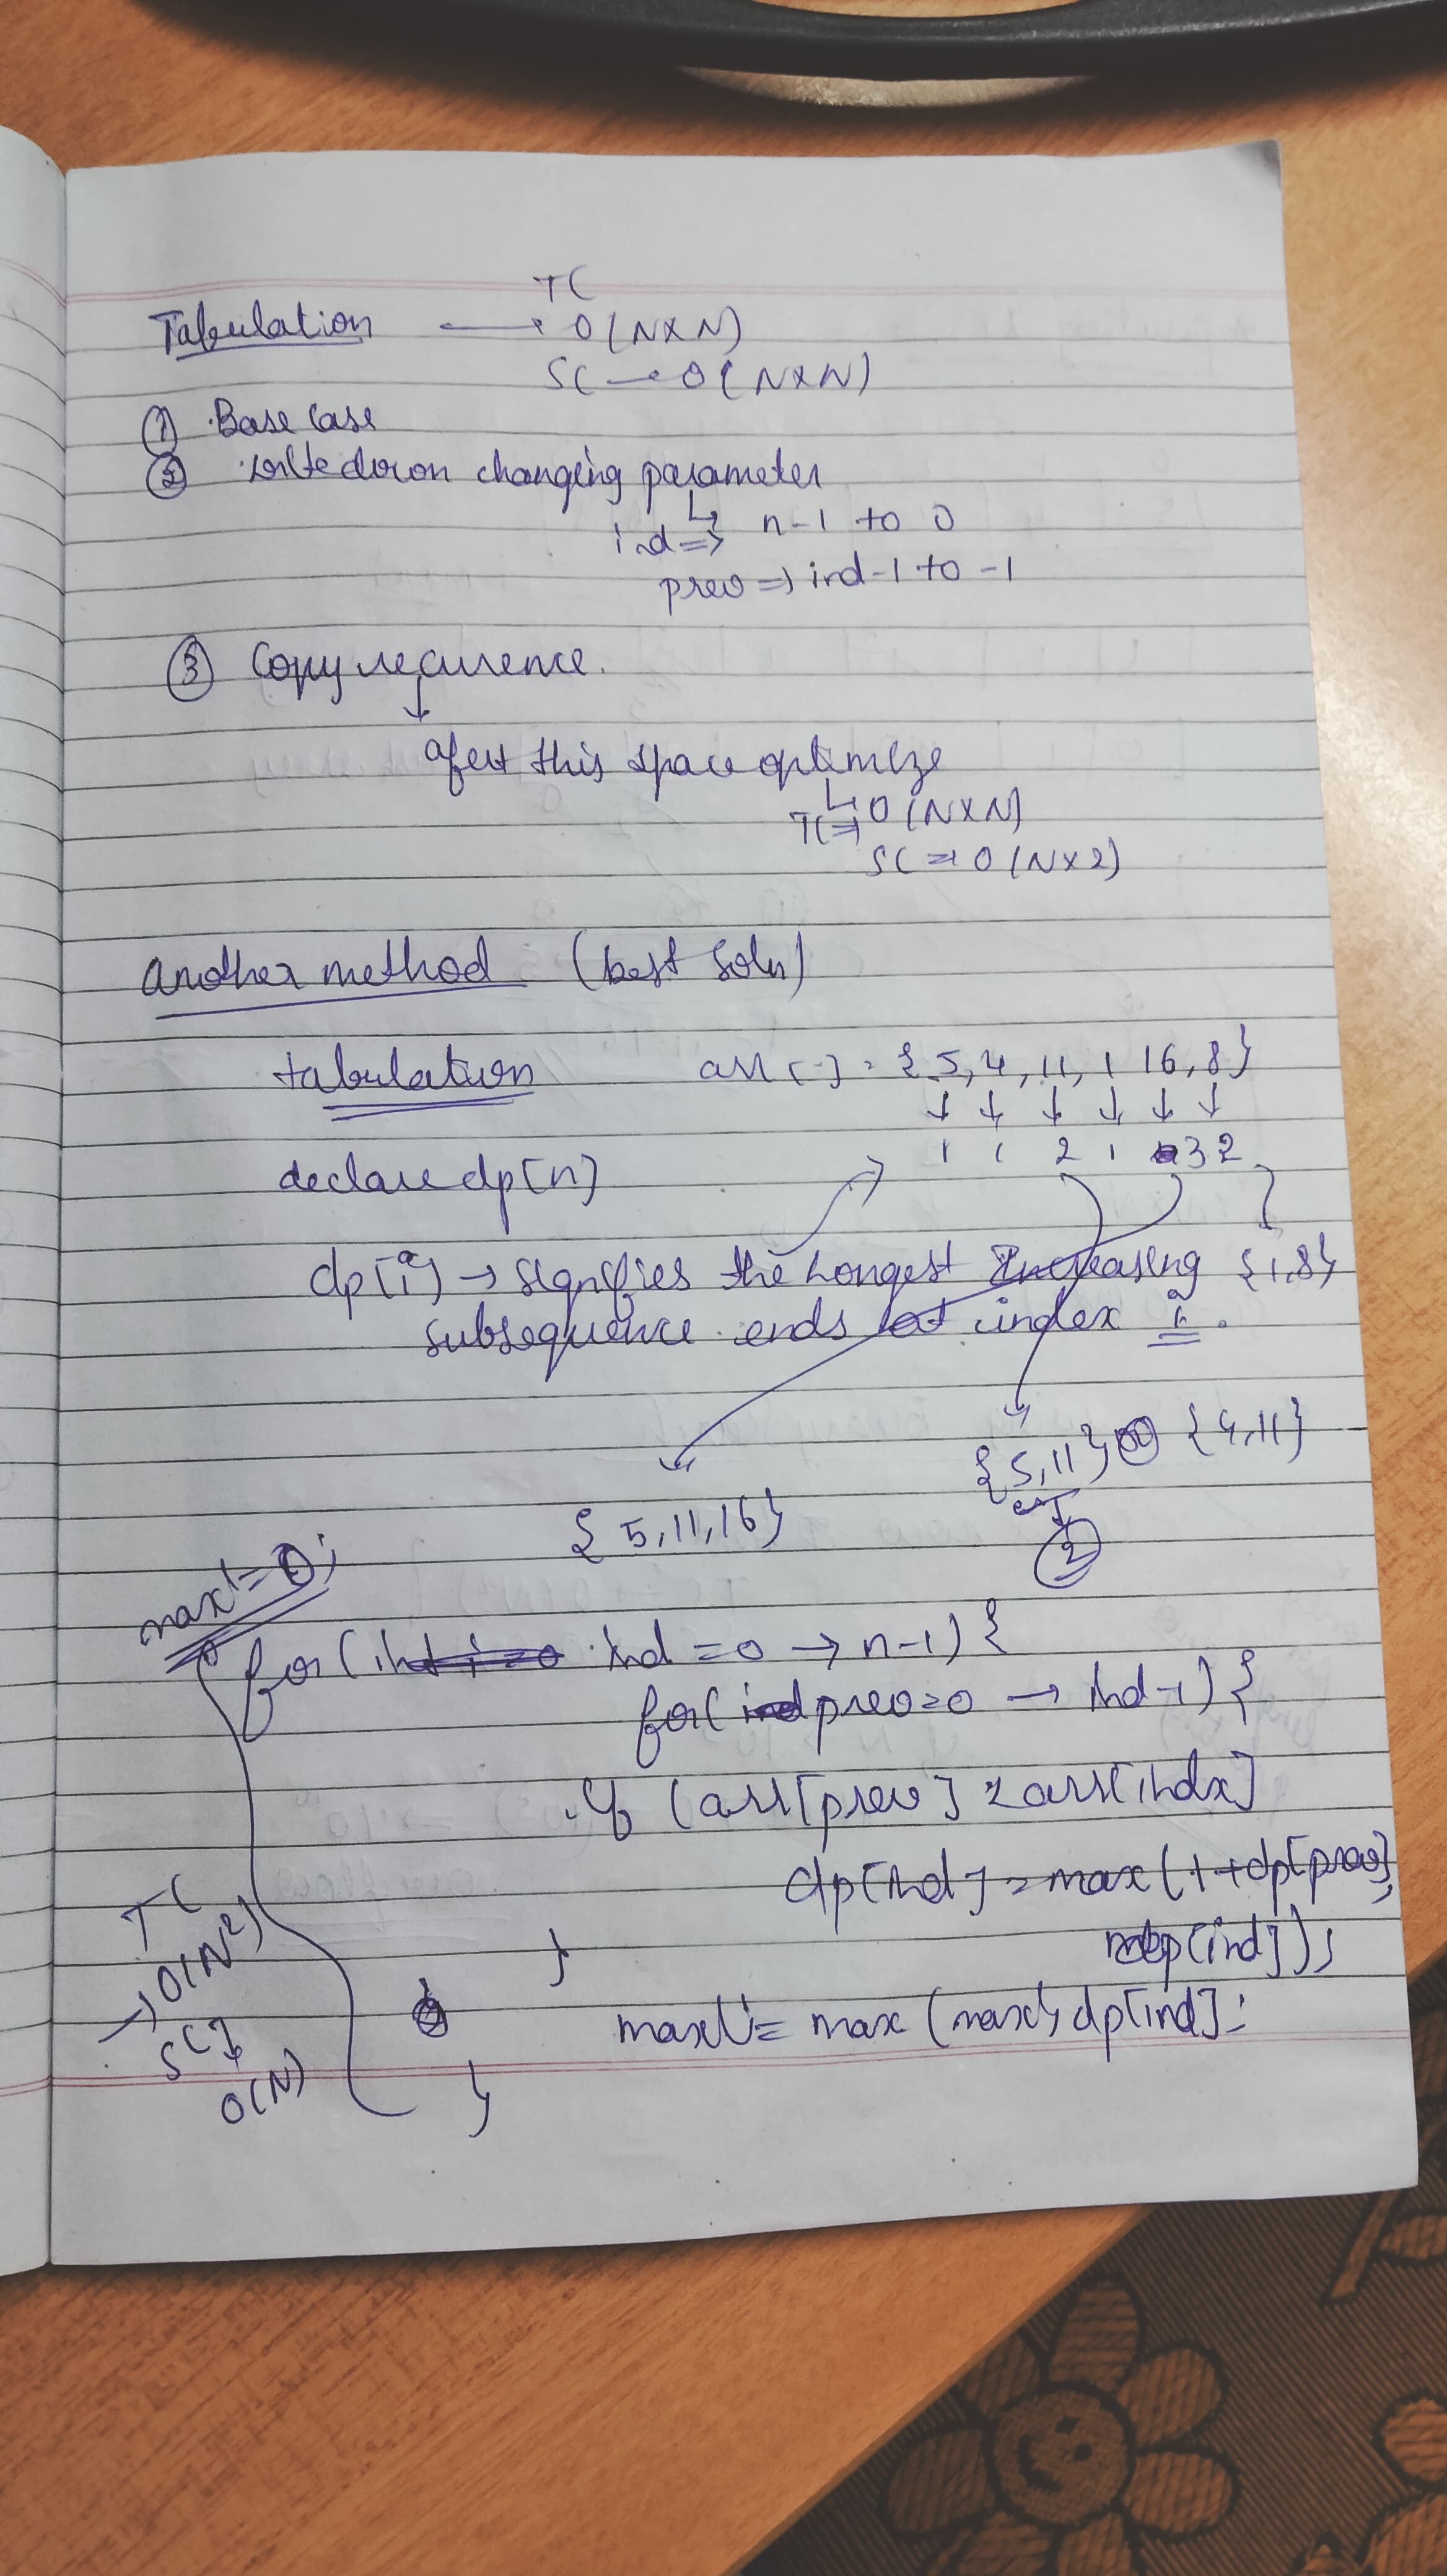 TC
Tabulation → O(N×N)
SC → O(N×N)
① Base Case
② write down changing parameter
↳ n-1 to 0
ind ⇒
prev ⇒ ind-1 to -1
③ Copy recurence.
↓
afert this space optimize
↳ O(N×N)
TC ⇒
SC ⇒ O(N×2)
another method (best soln)
tabulation arr[-] = {5,4,11,1 16,8}
↓ ↓ ↓ ↓ ↓ ↓
1 1 2 1 3 2
declare dp[n]
dp[i] → signifies the Longest Increasing {1,8}
subsequence ends at index i.
{5,11} or {4,11}
{5,11,16}
2
maxi = 0;
for( ind = 0 → n-1) {
for( prev=0 → ind-1) {
if (arr[prev] < arr[indx]
dp[ind] = max(1+dp[prev],
dp[ind]);
}
maxi = max (maxi, dp[ind];
}
TC
→ O(N²)
SC
↓
O(N)